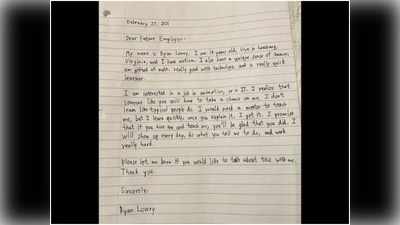 February 27, 20
Dear Future Employer,
My name is Ryan Lowry, I am 19 years old, live in Leesburg,
Virginia, and I have autism. I also have a unique sense of humor,
am gifted at math, really good with technology, and a really quick
learner.
I am interested in a job in animation, or in IT. I realize that
someone like you will have to take a chance on me, I don't
learn like typical people do. I would need a mentor to teach
me, but I learn quickly, once you explain it, I get it. I promise
that if you hire me and teach me, you'll be glad that you did. I
will show up every day, do what you tell me to do, and work
really hard.
Please let me know if you would like to talk about this with me.
Thank you.
Sincerely,
Ryan Lowry